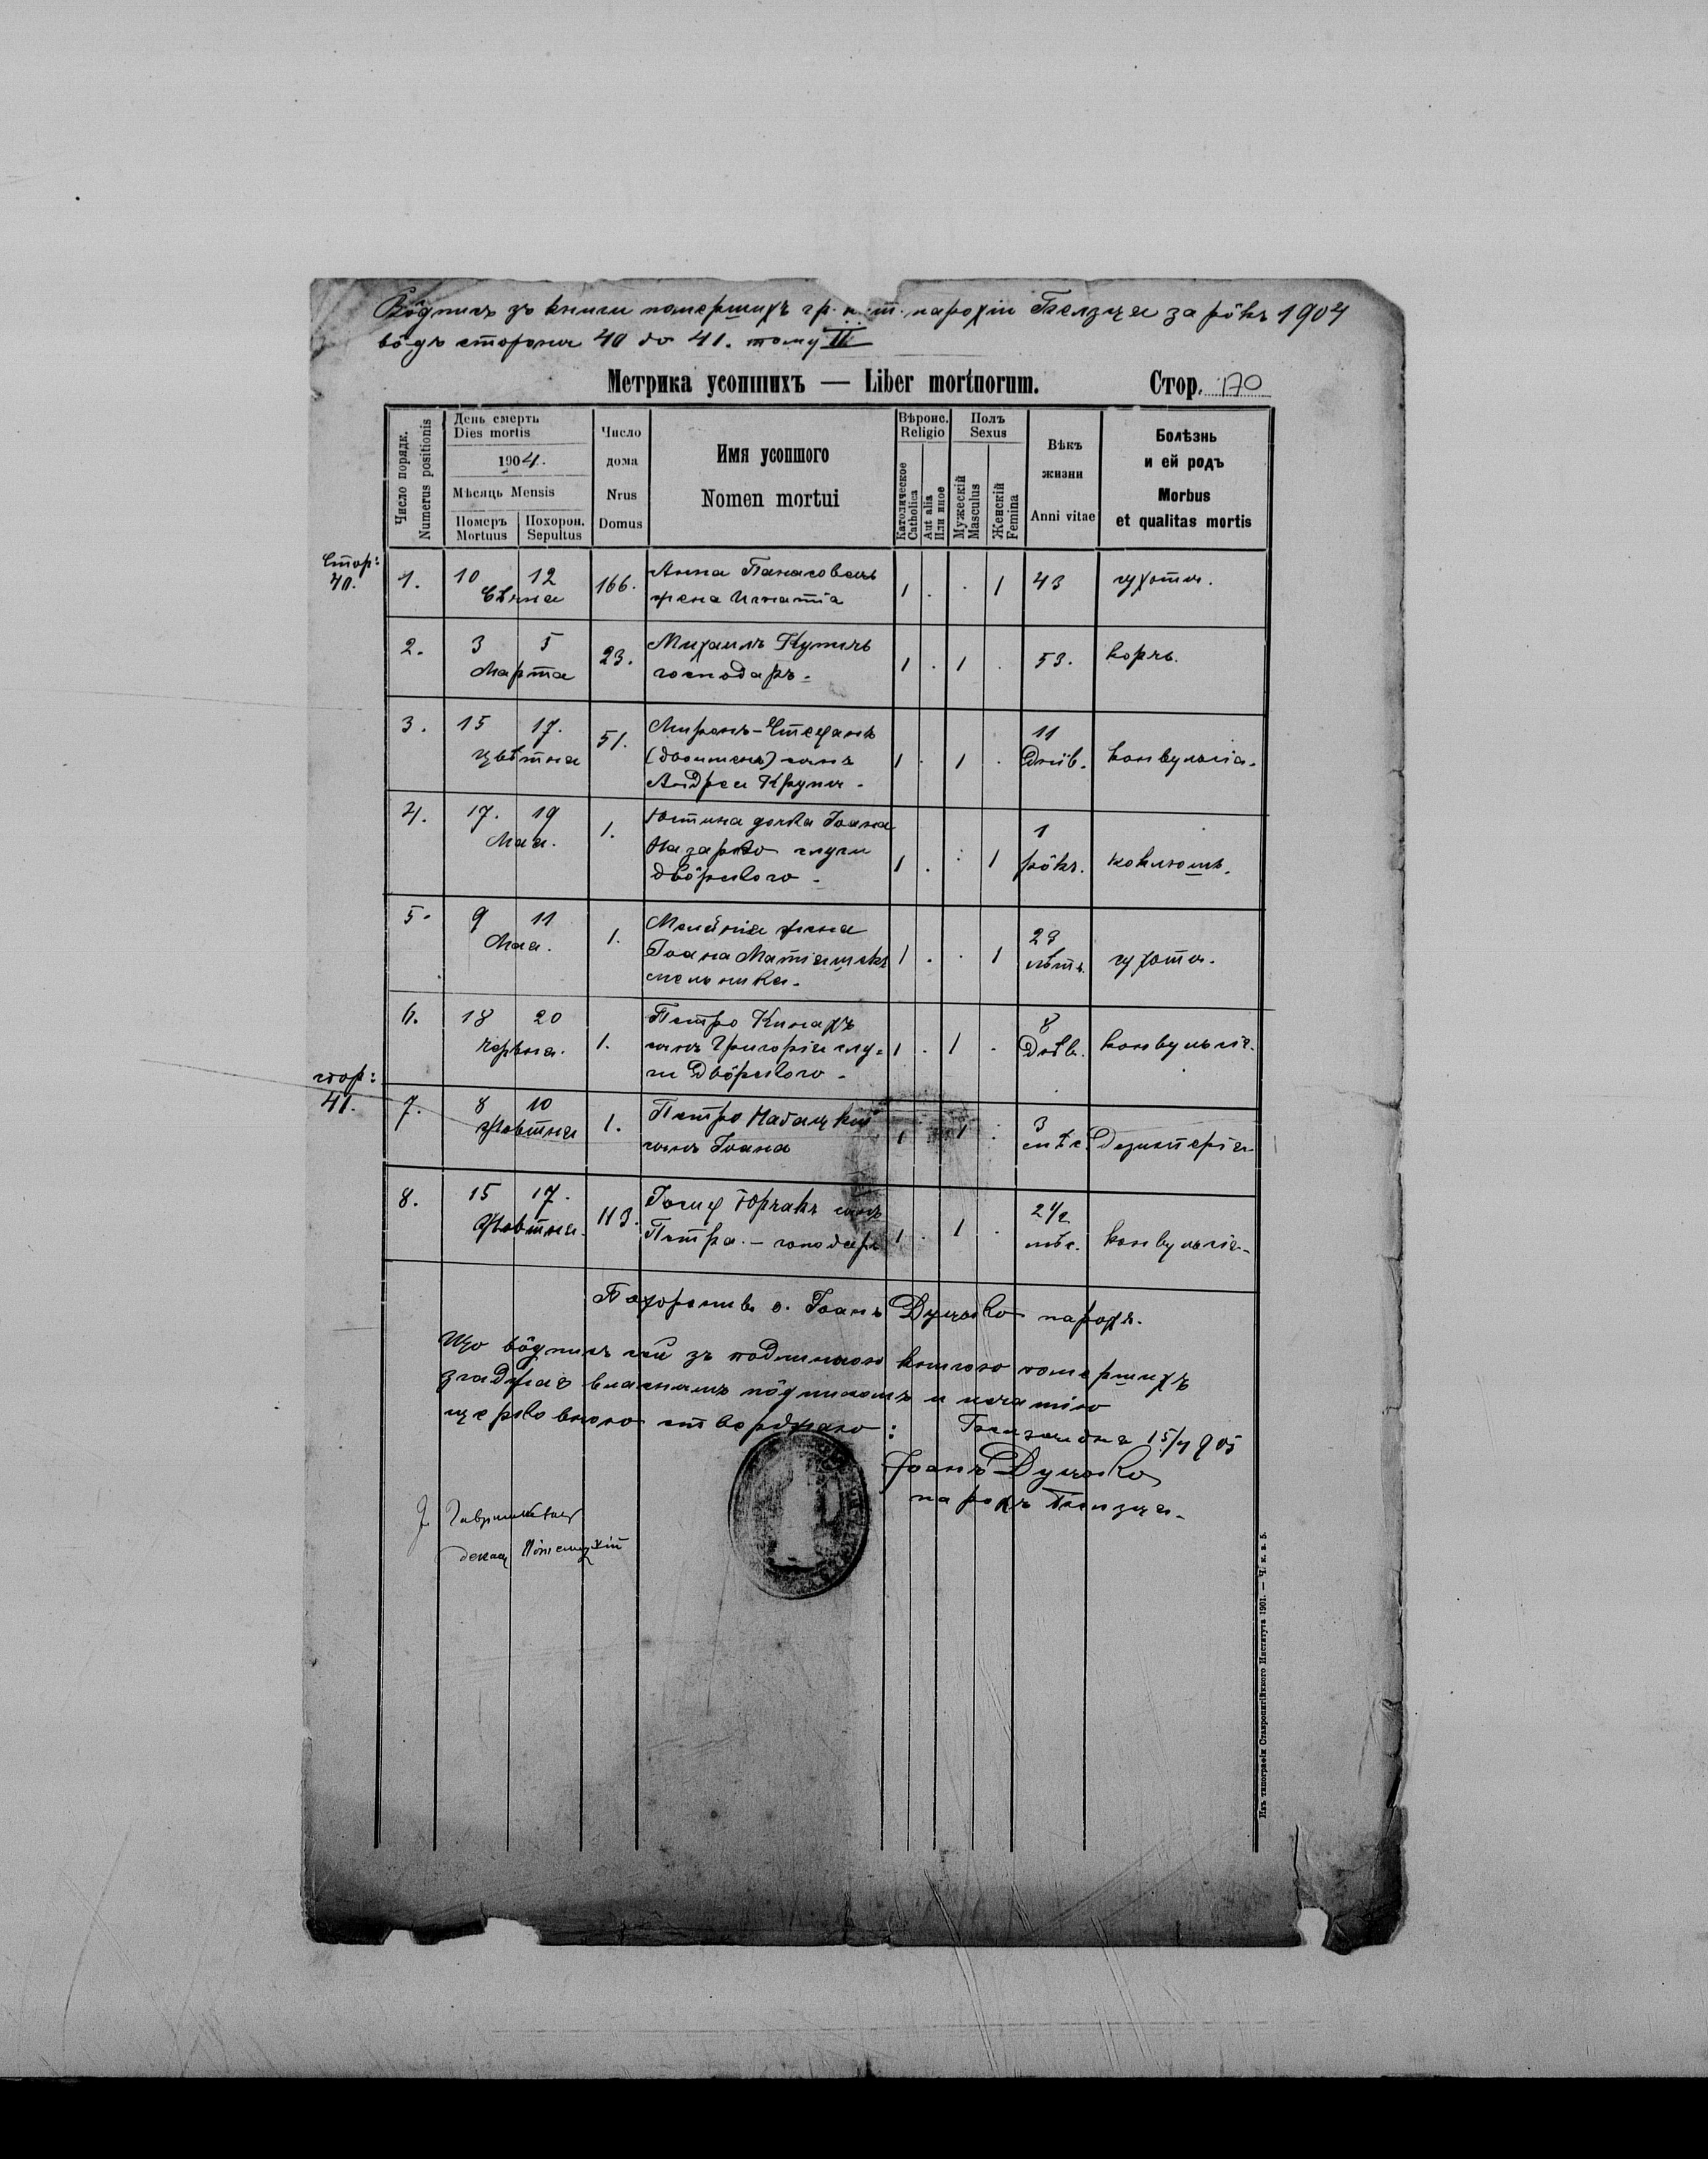 Вôдпись зъ книги помершихъ гр. к. пар парохіи Белзця за рôкъ 1904
вôдъ стороны 40 до 41. тому II
Метрика усопшихъ — Liber mortuorum. Стор. 170
Число порядк.
Numerus positionis
День смерть
Dies mortis
1904.
Мѣсяць Mensis
Померъ
Mortuus
Похорон.
Sepultus
Число
дома
Nrus
Domus
Имя усопшого
Nomen mortui
Вѣроис.
Religio
Католическое
Catholica
Aut alia
Или иное
Полъ
Sexus
Мужескій
Masculus
Женскій
Femina
Вѣкъ
жизни
Anni vitae
Болѣзнь
и ей родъ
Morbus
et qualitas mortis
Стор:
40.
1. 10 12 Сѣчня 166. Анна
жена Игнатія 1 . . 1 43 сухоты.
2. 3 5 Марта 23. Михаилъ
господарь. 1 . 1 . 53. корчь.
3. 15 17. Цвѣтня 51. Миронъ-Стефанъ
сынъ
Андрея Крупы. 1 . 1 . 11 Днів. конвульсія.
4. 17. 19 Мая. 1. Юстина дочка Іоана
Назарко слуги
двôрского. 1 . : 1 1 рôкъ. коклюшъ.
5. 9 11 Мая. 1. жена
Іоана
мельника. 1 . . 1 29 лѣтъ. сухоты.
6. 18 20 червня. 1. Петро
сынъ Григорія слу-
ги Двôрского. 1 . 1 . 8 Днѣв. конвульсія.
стор:
41.
7. 8 10 Жовтня 1. Петро
сынъ Іоана 1 . 1 . 3 мѣс. Дезинтерія
8. 15 17. Жовтня. 113. Іосиф Юрчакъ сынъ
Петра. — господарь 1 . 1 . 2 1/2 мѣс. конвульсія.
Похоронивъ о. Іоанъ Дуцько парохъ.
Що вôдпись сей зъ подлинною книгою помершихъ
згаджає власнымъ пôдписомъ и печатію
церковною стверджаю:
15/1 905
Іоанъ Дуцько
парохъ Белзця.
декан
Изъ типографіи Ставропигійского Института 1901. — Ч. к. в. 5.